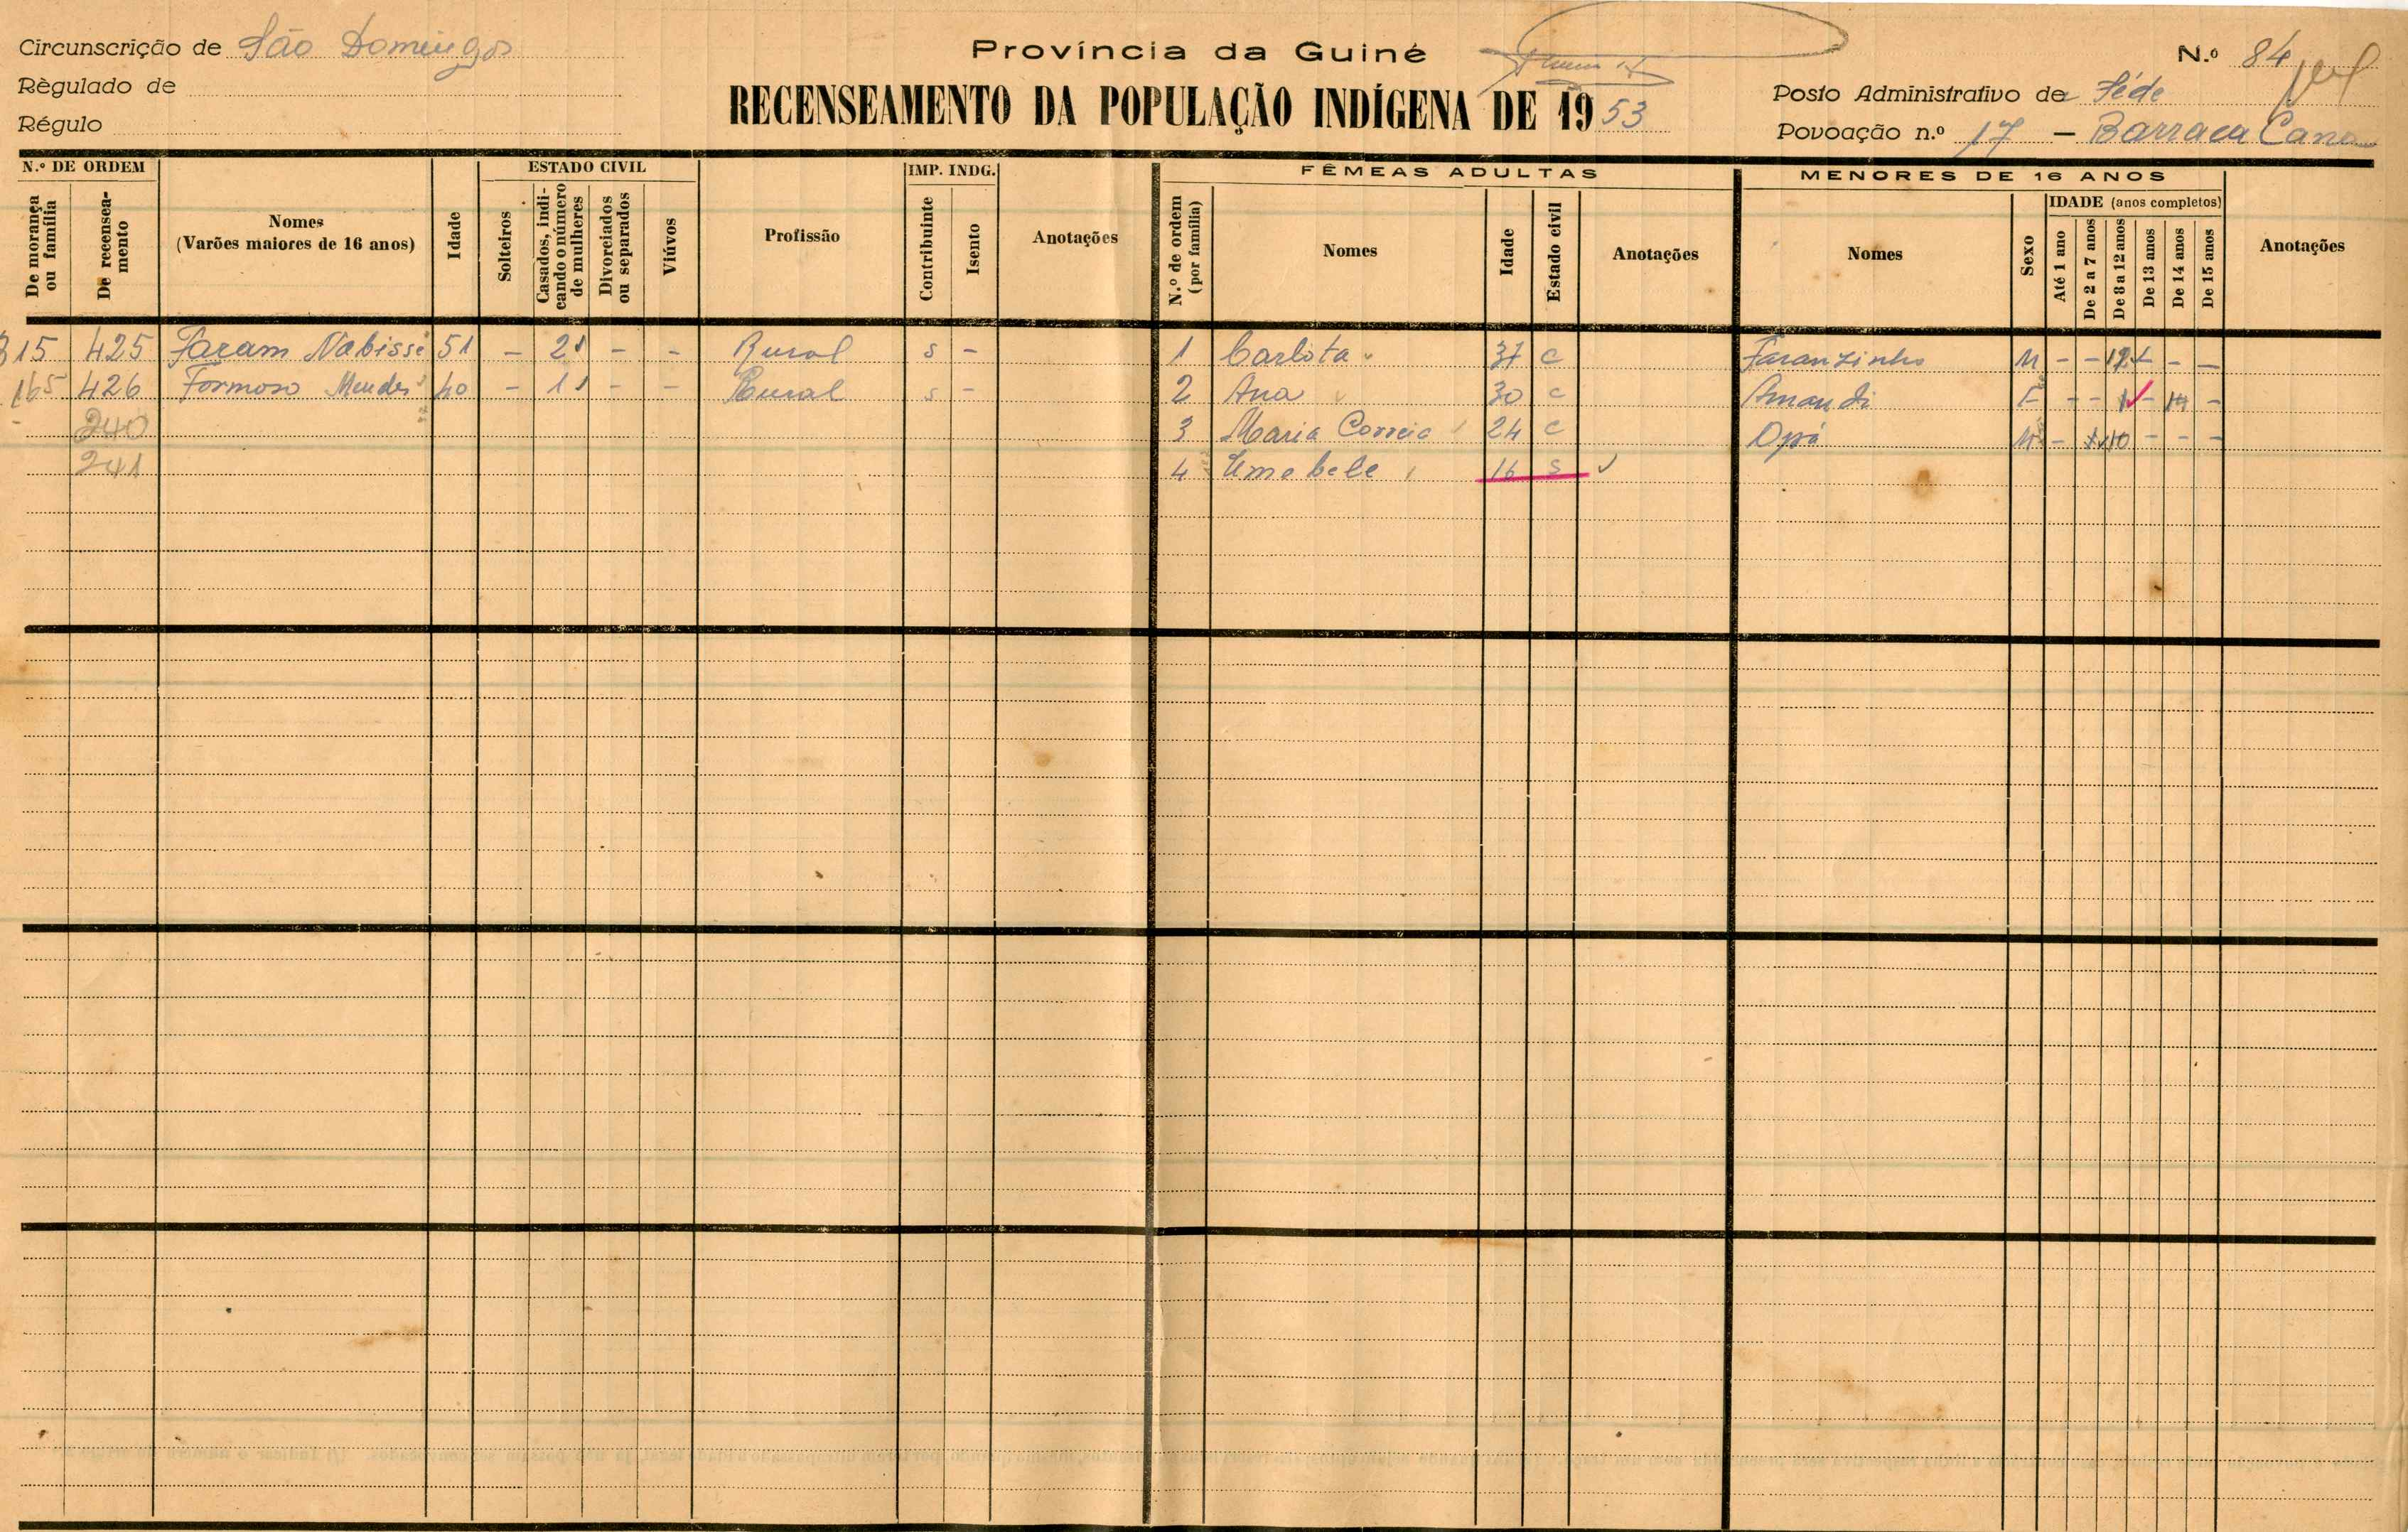 Circunscrição de São Domingos
Règulado de
Régulo
Província da Guiné
RECENSEAMENTO DA POPULAÇÃO INDÍGENA DE 1953
N.º 84
Posto Administrativo de Séde
Povoação n.º 17 – Barraca Cana
N.º DE ORDEM
De morança ou família
De recenseamento
Nomes
(Varões maiores de 16 anos)
Idade
ESTADO CIVIL
Solteiros
Casados, indicando o número de mulheres
Divorciados ou separados
Viúvos
Profissão
IMP. INDG.
Contribuinte
Isento
Anotações
FÊMEAS ADULTAS
N.º de ordem (por família)
Nomes
Idade
Estado civil
Anotações
MENORES DE 16 ANOS
Nomes
Sexo
IDADE (anos completos)
Até 1 ano
De 2 a 7 anos
De 8 a 12 anos
De 13 anos
De 14 anos
De 15 anos
Anotações
315 425 Faram Nabisse 51 – 2 – – Rural s – 1 Carlota 37 c Faranzinho M – – 12 – –
165 426 Formoso Mendes 40 – 1 – – Rural s – 2 Ana 30 c Amandi F – – – 14 –
240 3 Maria Correia 24 c Opá M – 10 – – –
241 4 16 s